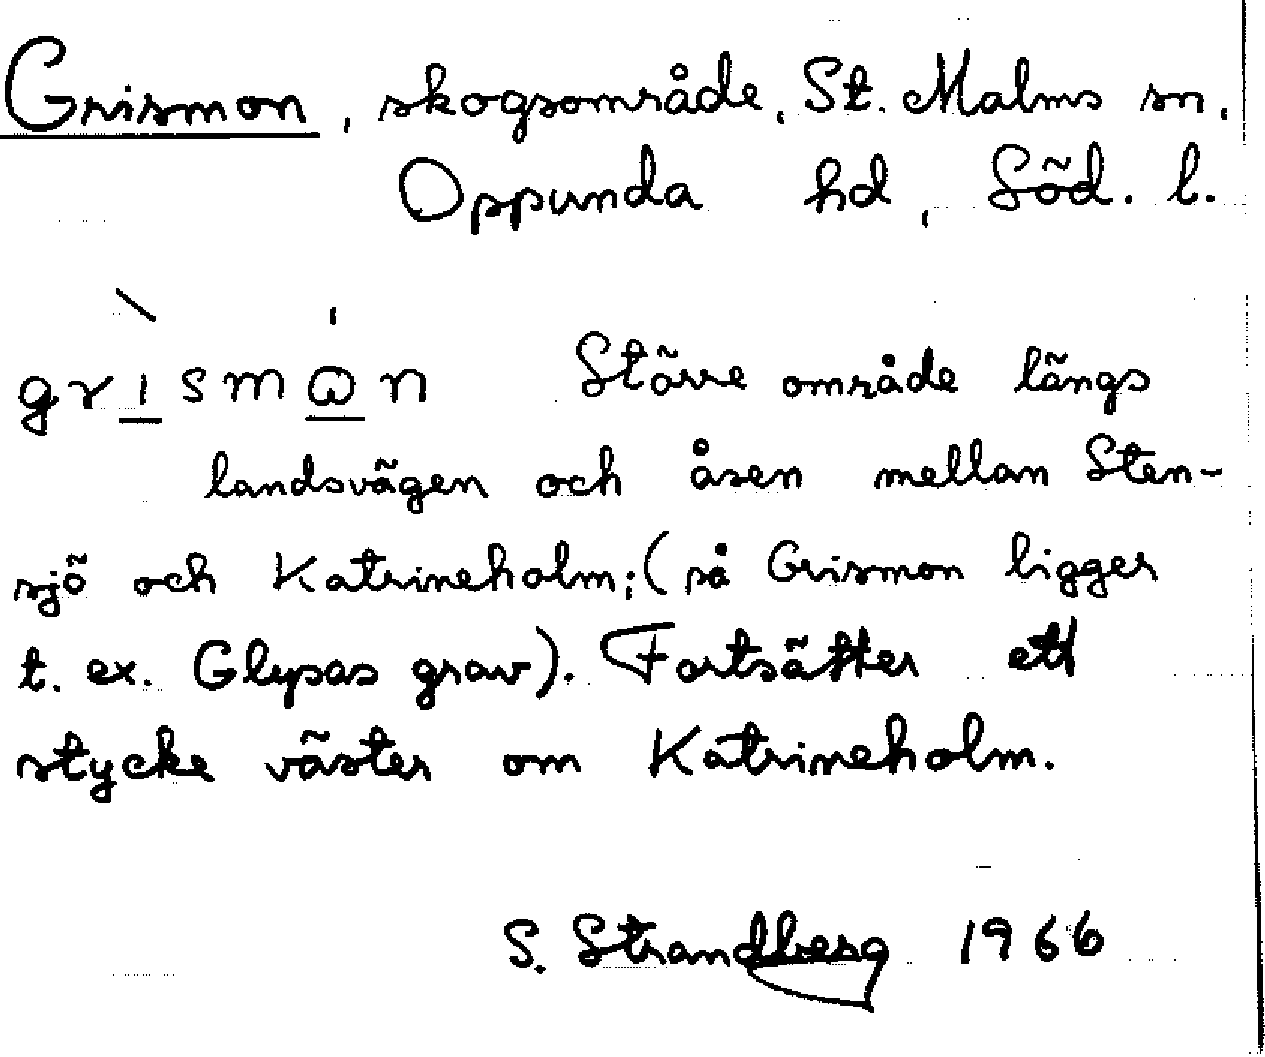 Grismon, skogsområde, St. Malms sn,
Oppunda hd, Söd. l.
grìsmω̇n Större område längs
landsvägen och åsen mellan Sten-
sjö och Katrineholm; (på Grismon ligger
t. ex. Glypas grav). Fortsätter ett
stycke väster om Katrineholm.
S. Strandberg 1966